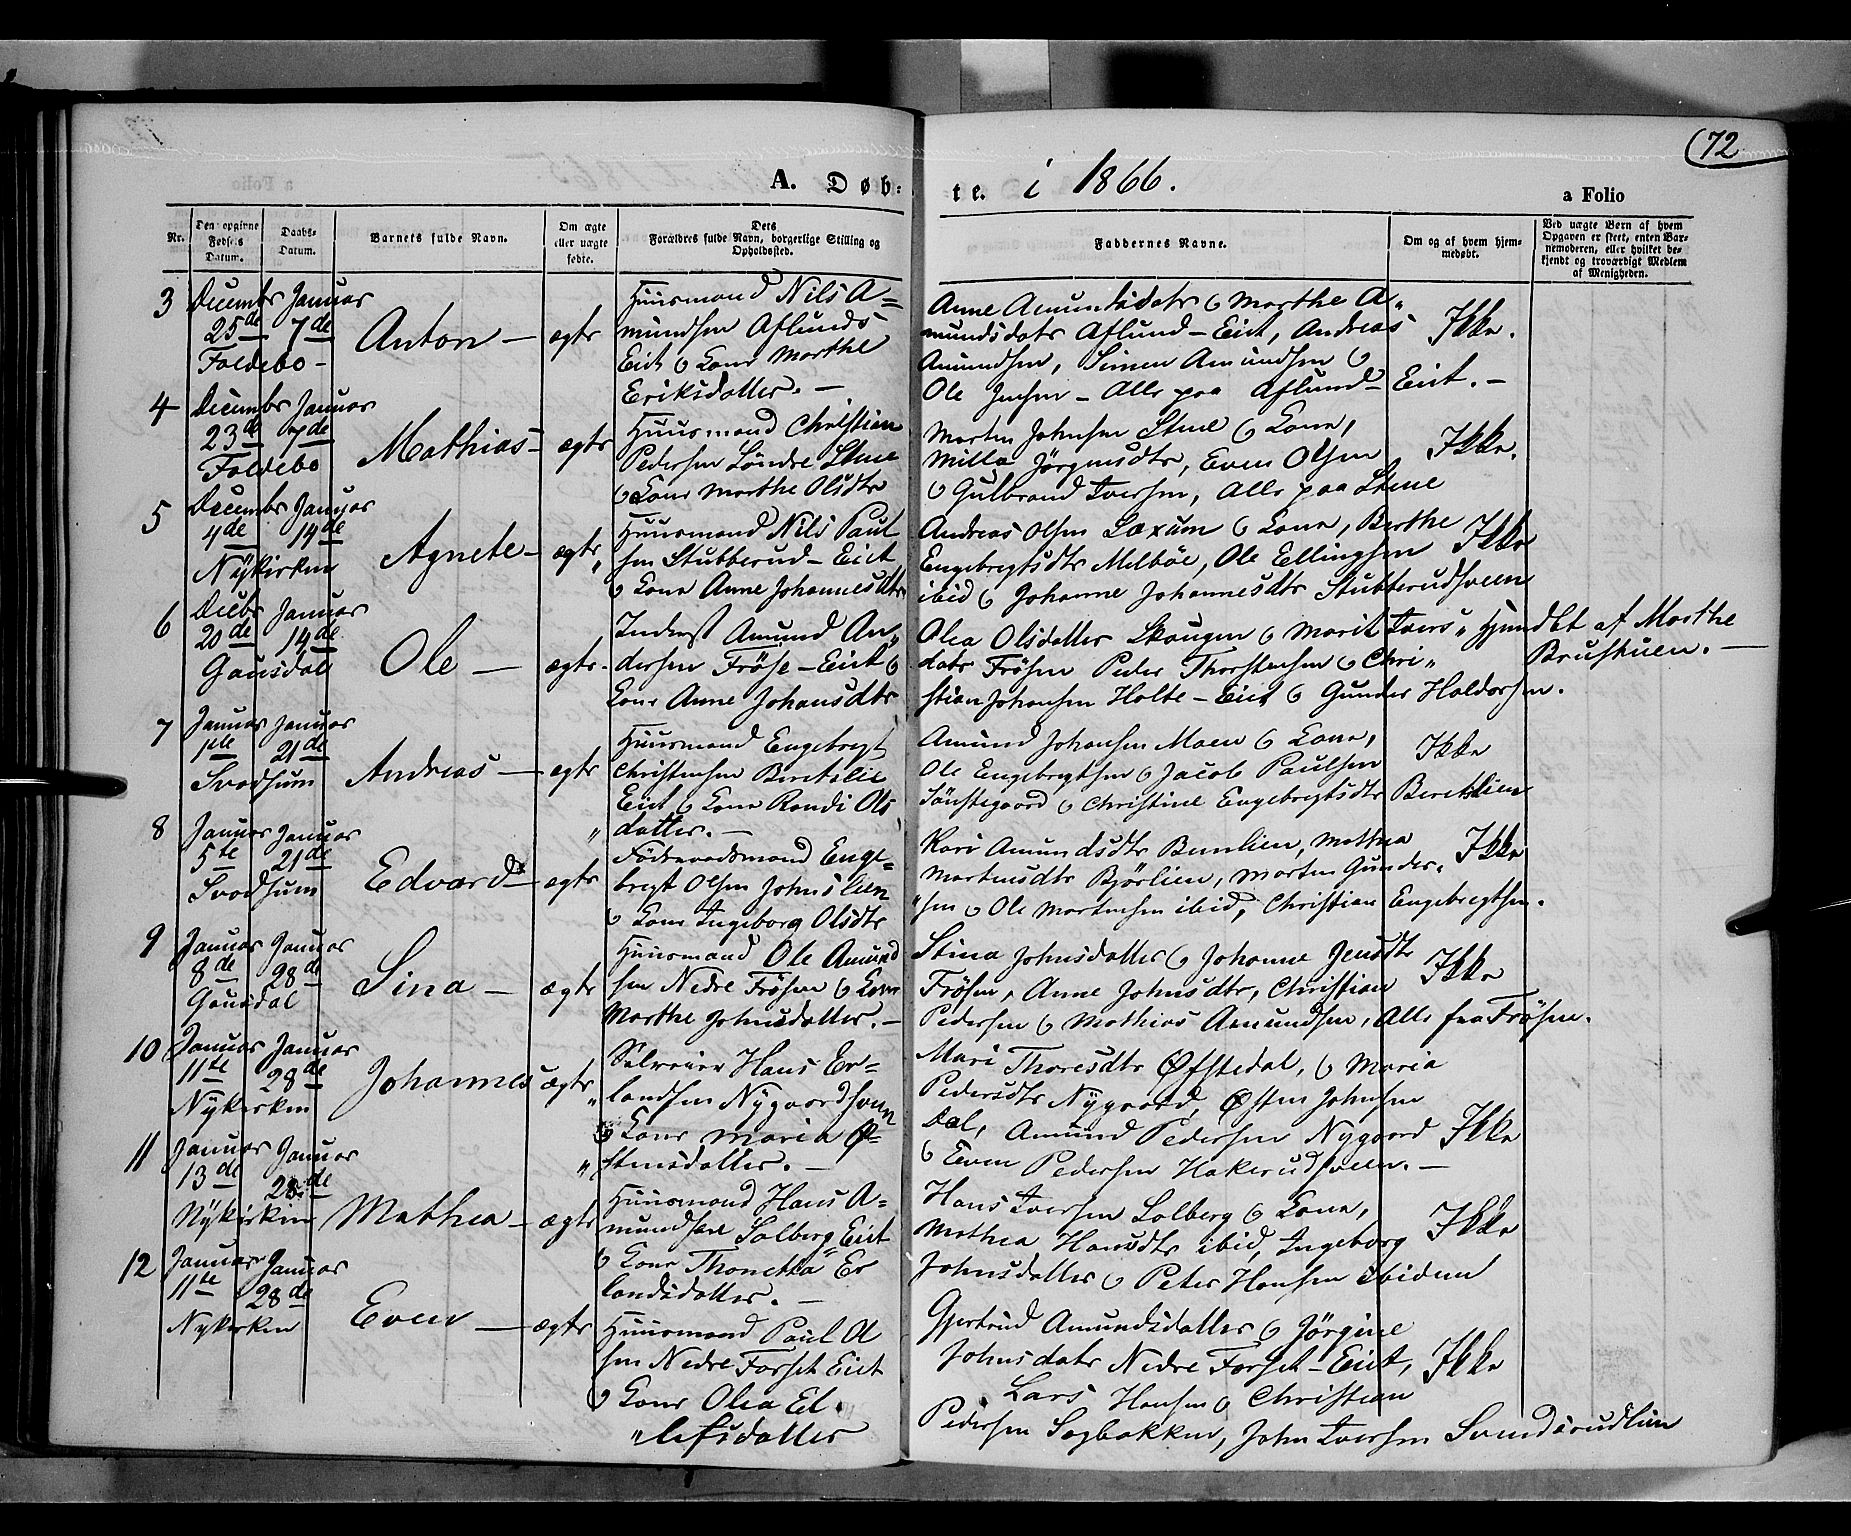 72
A. Døb-
te. i 1866.
a Folio
Nr.
Den opgivne Fødsels Datum.
Daabs-Datum.
Barnets fulde Navn.
Om ægte eller uægte fødte.
Dets Forældres fulde Navn, borgerlige Stilling og Opholdssted.
Faddernes Navne.
Om og af hvem hjemmedøbt.
Ved uægte Børn af hvem Opgaven er skeet, enten Barnemoderen, eller hvilket bekjendt og troværdigt Medlem af Menigheden.
3 Decembr 25de Januar 7de Foldebo - Anton - ægte
Huusmand Nils A=
mundsen Aflunds
Eiet & Kone Marthe
Eriksdatter. -
Anne Amundsdatr & Marthe A„
mundsdatr Aflund-Eiet, Andreas
Amundsen, Simen Amundsen &
Ole Jensen - Alle paa Aflund-Eiet. -
Ikke.
4 Decembr 23de Januar 7de Foldebo Mathias - ægte
Huusmand Christian
Pedersen Söndre Stene
& Kone Marthe Olsdtr
Morten Johnsen Stene & Kone,
Milla Jörgensdtr, Even Olsen
& Gulbrand Iversen, Alle paa Stene
Ikke.
5 Decembr 4de Januar 14de Nÿkirken Agnete - ægte„
Huusmand Nils Paul
sen Stubberud-Eiet
& Kone Anne Johannesdtr
Andreas Olsen Loxum & Kone, Berthe
Engebregtsdtr Melböe, Ole Ellingsen
ibid & Johanne Johannesdtr Stubberudsveen
Ikke
6 Decbr 20de Januar 14de Gausdal Ole - ægte -
Inderst Amund An„
dersen Fröse-Eiet &
Kone Anne Johansdtr
Olea Olsdatter Skougen & Marit Ivers„
datr Frösen Peder Thorstensen & Chri„
stian Johansen Holte-Eiet & Gunder Haldorsen.
Hjemdbt af Marthe
Brustuen. -
7 Januar 1ste Januar 21de Svadsum Andreas - ægte
Huusmand Engebregt
Christensen Beretslie
Eiet & Kone Randi Ols
„datter. -
Amund Johansen Moen & Kone,
Ole Engebregtsen & Jacob Paulsen
Sönstegaard & Christine Engebregtsdtr Beretslien
Ikke
8 Januar 5te Januar 21de Svadsum Edvard - ægte
Föderaadsmand Enge-
bregt Olsen Johnslien
& Kone Ingeborg Olsdtr
Kari Amundsdtr Benlien, Mathea
Martensdtr Bjørlien, Morten Gunder„
„sen & Ole Mortensen ibid, Christian Engebregtsen.
Ikke
9 Januar 8de Januar 28de Gausdal Sina - ægte
Huusmand Ole Amund
sen Nedre Frösen & Kone
Marthe Johnsdatter. -
Stina Johnsdatter & Johanne Jensdtr
Frösen, Anne Johnsdtr, Christian
Pedersen & Mathias Amundsen, Alle fra Frösen.
Ikke
10 Januar 11te Januar 28de Nykirken Johannes ægte
Selveier Hans Er-
„landsen Nygaardsveen
& Kone Maria Ø-
„stensdatter. -
Mari Thoresdtr Øfstedal, & Maria
Pedersdtr Nygaard, Østen Johnsen
Dal, Amund Pedersen Nygaard
& Even Pedersen Hakerudsveen. -
Ikke
11 Januar 13de Januar 28de Nÿkirken Mathea - ægte
Huusmand Hans A-
mundsen Solberg Eiet
& Kone Thonetta Er
landsdatter. -
Hans Iversen Solberg & Kone,
Mathea Hansdtr ibid, Ingeborg
Johnsdatter & Peter Hansen ibidem
Ikke
12 Januar 11te Januar 28de Nykirken Even - ægte
Huusmand Paul A
sen Nedre Forset Eiet
& Kone Olea El„
„lefsdatter
Gjertrud Amundsdatter & Jörgine
Johnsdatr Nedre Forset-Eiet,
Lars Hansen & Christian
Pedersen Sagbakken, John Iversen Svendsrudlien
Ikke